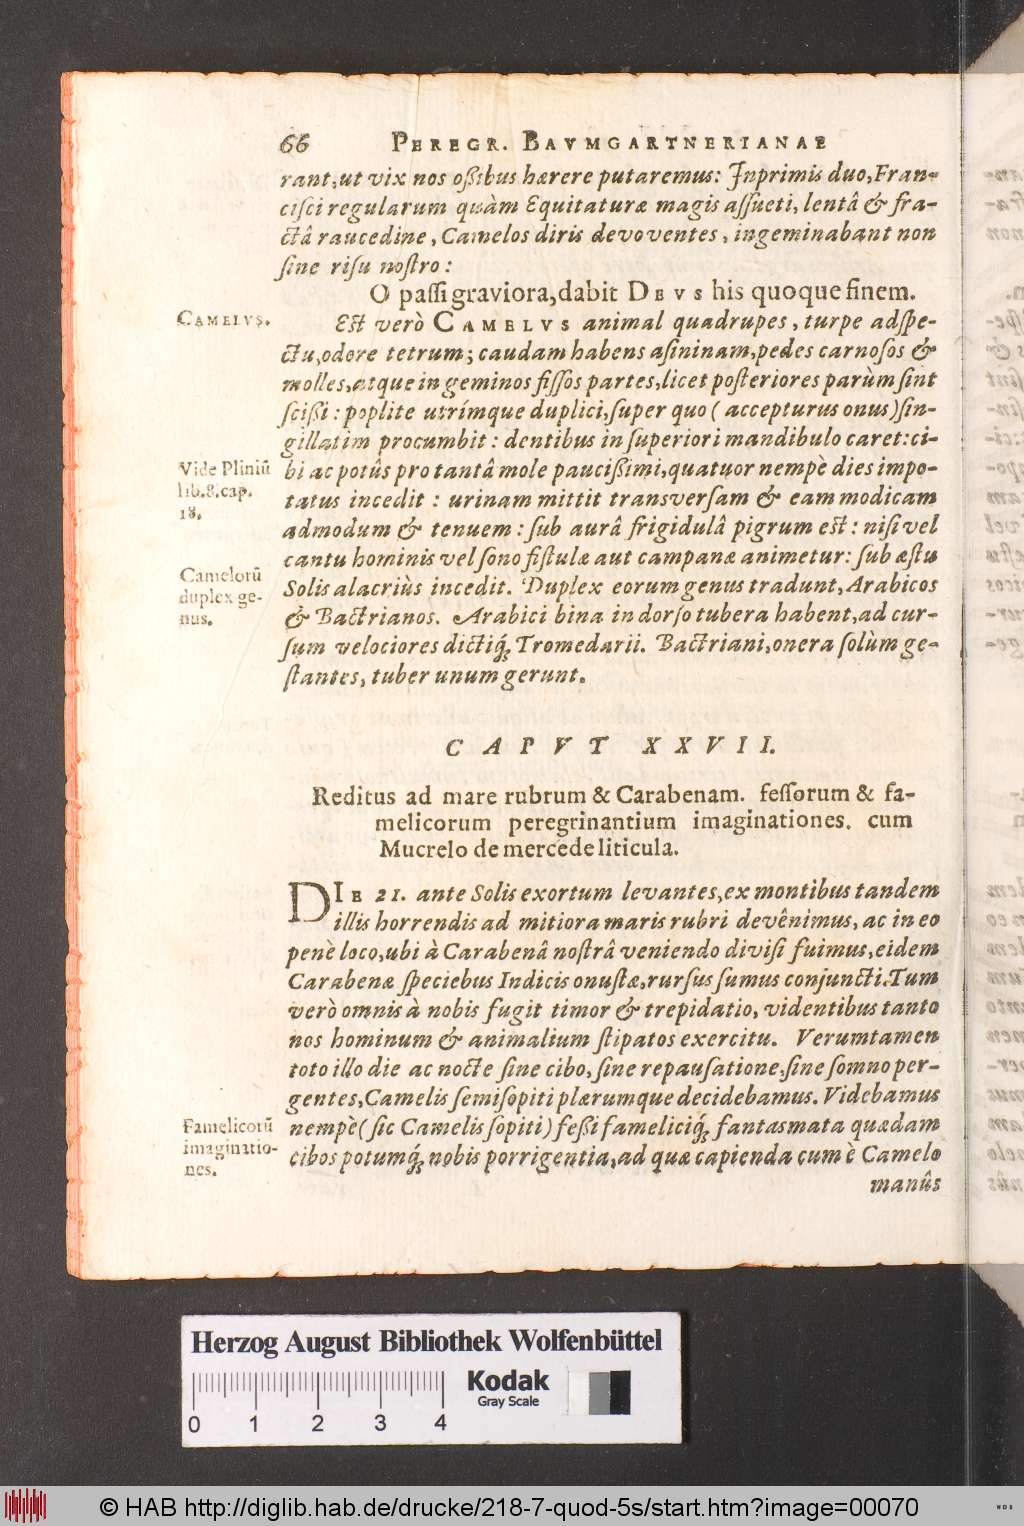 66 PEREGR. BAVMGARTNERIANAE
rant, ut vix nos oßibus hærere putaremus: Inprimis duo, Fran-
cisci regularum quàm Equitaturæ magis assueti, lentâ & fra-
ctâ raucedine, Camelos diris devoventes, ingeminabant non
sine risu nostro:
O passi graviora, dabit DEVS his quoque finem.
CAMELVS.
Est verò CAMELVS animal quadrupes, turpe adspe-
ctu, odore tetrum; caudam habens asininam, pedes carnosos &
molles, atque in geminos fissos partes, licet posteriores parùm sint
scißi: poplite utrímque duplici, super quo (accepturus onus) sin-
gillatim procumbit: dentibus in superiori mandibulo caret: ci-
Vide Pliniū
lib. 8. cap.
18.
bi ac potûs pro tantâ mole paucißimi, quatuor nempè dies impo-
tatus incedit: urinam mittit transversam & eam modicam
admodum & tenuem: sub aurâ frigidulâ pigrum est: nisi vel
cantu hominis vel sono fistulæ aut campanæ animetur: sub æstu
Camelorū
duplex ge-
nus.
Solis alacriùs incedit. Duplex eorum genus tradunt, Arabicos
& Bactrianos. Arabici bina in dorso tubera habent, ad cur-
sum velociores dictiq́; Tromedarii. Bactriani, onera solùm ge-
stantes, tuber unum gerunt.
CAPVT XXVII.
Reditus ad mare rubrum & Carabenam. fessorum & fa-
melicorum peregrinantium imaginationes. cum
Mucrelo de mercede liticula.
DIE 21. ante Solis exortum levantes, ex montibus tandem
illis horrendis ad mitiora maris rubri devênimus, ac in eo
penè loco, ubi à Carabenâ nostrâ veniendo divisi fuimus, eidem
Carabenæ speciebus Indicis onustæ, rursus sumus conjuncti. Tum
verò omnis à nobis fugit timor & trepidatio, videntibus tanto
nos hominum & animalium stipatos exercitu. Verumtamen
toto illo die ac nocte sine cibo, sine repausatione, sine somno per-
gentes, Camelis semisopiti plærumque decidebamus. Videbamus
Famelicorū
imaginatio-
nes.
nempè (sic Camelis sopiti) feßi famelicíq́; fantasmata quædam
cibos potumq́; nobis porrigentia, ad quæ capienda cum è Camelo
manûs
Herzog August Bibliothek Wolfenbüttel
Kodak
Gray Scale
0 1 2 3 4
© HAB http://diglib.hab.de/drucke/218-7-quod-5s/start.htm?image=00070